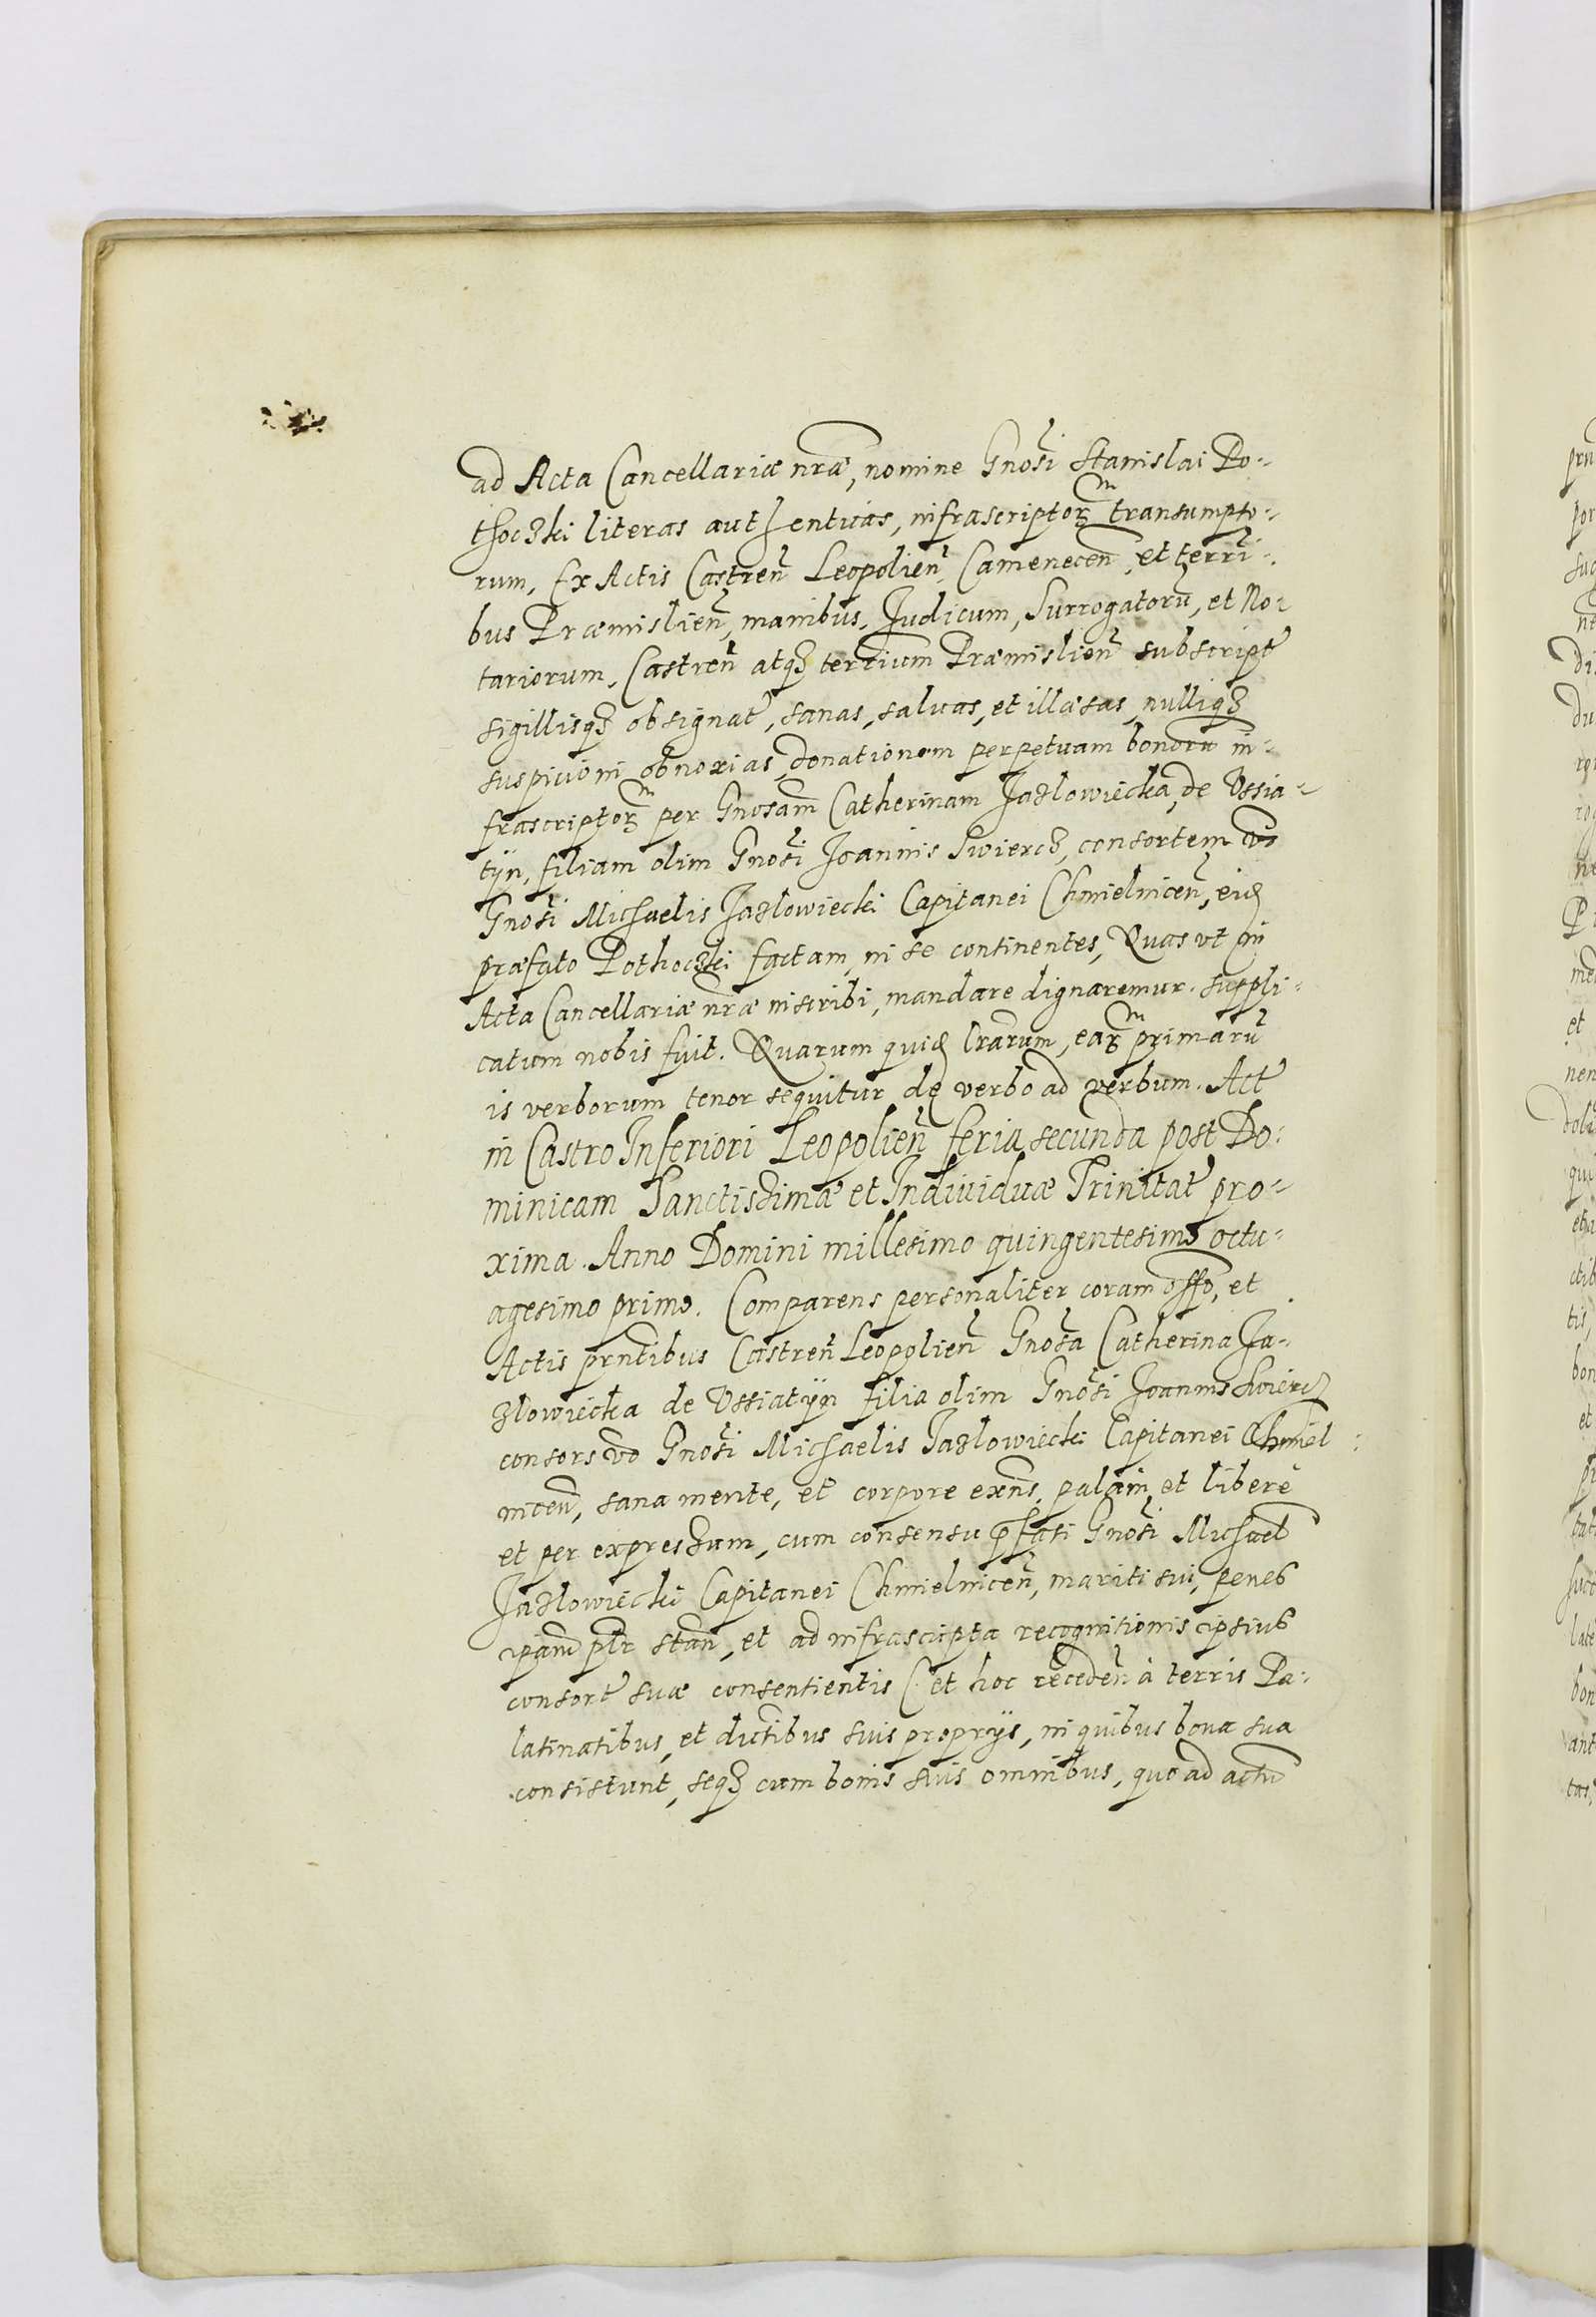 ad Acta Cancellariæ nr̃æ, nomine Gnosi Stanislai Po-
thoczki literas authenticas, infrascriptorum transumpto-
rum, Ex Actis Castren̄ Leopolien̄, Camenecen̄, et terri-
bus Præmislien̄, manibus, Judicum, Surrogatorū, et No-
tariorum, Castren̄ atq₃ terrium Præmislien̄ subscript
sigillisq₃ obsignat, sanas, saluas, et illæsas, nulliq₃
suspicioni obnoxias, donationem perpetuam bonorū in-
frascriptorum per Gnosam Catherinam Jazlowiecka, de Vssia-
tÿn, filiam olim Gnosi Joannis Swiercz, consortem vo
Gnosi Michaelis Jazlowiecki Capitanei Chmielnicen̄, eid
præfato Pothoczki factam, in se continentes, Quas vt in
Acta Cancellariæ nr̃æ inscribi, mandare dignaremur. suppli-
catum nobis fuit. Quarum quid lrarum, earum primarū
is verborum tenor sequitur de verbo ad verbum. Act
in Castro Inferiori Leopolien̄ feria secunda post Do-
minicam Sanctissimæ et Indiuiduæ Trinitat pro-
xima. Anno Domini millesimo quingentesimo octu-
agesimo primo. Comparens personaliter coram offo, et
Actis prntibus Castren̄ Leopolien̄ Gnosa Catherina Ja-
zlowiecka de Vssiatÿn filia olim Gnosi Joannis Swiercz
consors vo Gnosi Michaelis Jazlowiecki Capitanei Chmiel-
nicen̄, sana mente, et corpore exn̄s, palam, et liberè
et per expressum, cum consensu pfati Gnosi Michael
Jazlowiecki Capitanei Chmielnicen̄, mariti sui, penes
ipam ptr stan̄, et ad infrascripta recognitionis ipsius
consort suæ consentientis (et hoc receden̄ à terris Pa-
latinatibus, et dictibus suis proprijs, in quibus bona sua
consistunt, seq₃ cum bonis suis omnibus, quo ad actū